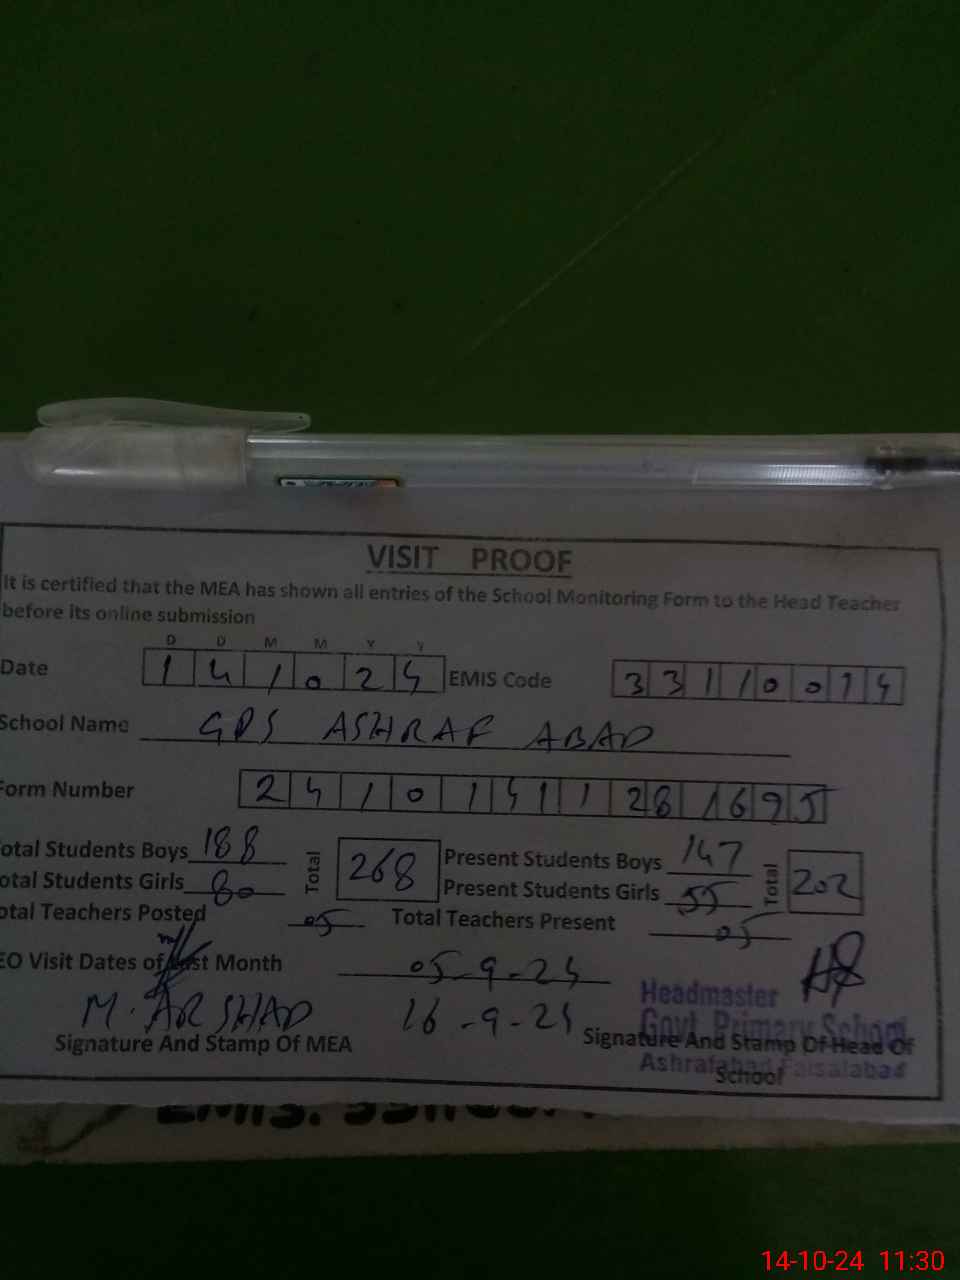 VISIT PROOF
It is certified that the MEA has shown all entries of the School Monitoring Form to the Head Teacher
before its online submission
D D M M Y Y
Date 1 4 1 0 2 4 EMIS Code 3 3 1 1 0 0 1 4
School Name GPS ASHRAF ABAD
Form Number 2 4 1 0 1 4 1 1 2 8 1 6 9 5
otal Students Boys 188 Total 268 Present Students Boys 147 Total 202
otal Students Girls 80 Present Students Girls 55
otal Teachers Posted 05 Total Teachers Present 05
EO Visit Dates of Last Month 05-9-24
M. ARSHAD 16-9-24
Signature And Stamp Of MEA Signature And Stamp Of Head Of
School
Headmaster
Govt. Primary School
Ashrafabad Faisalabad
EMIS.
14-10-24 11:30